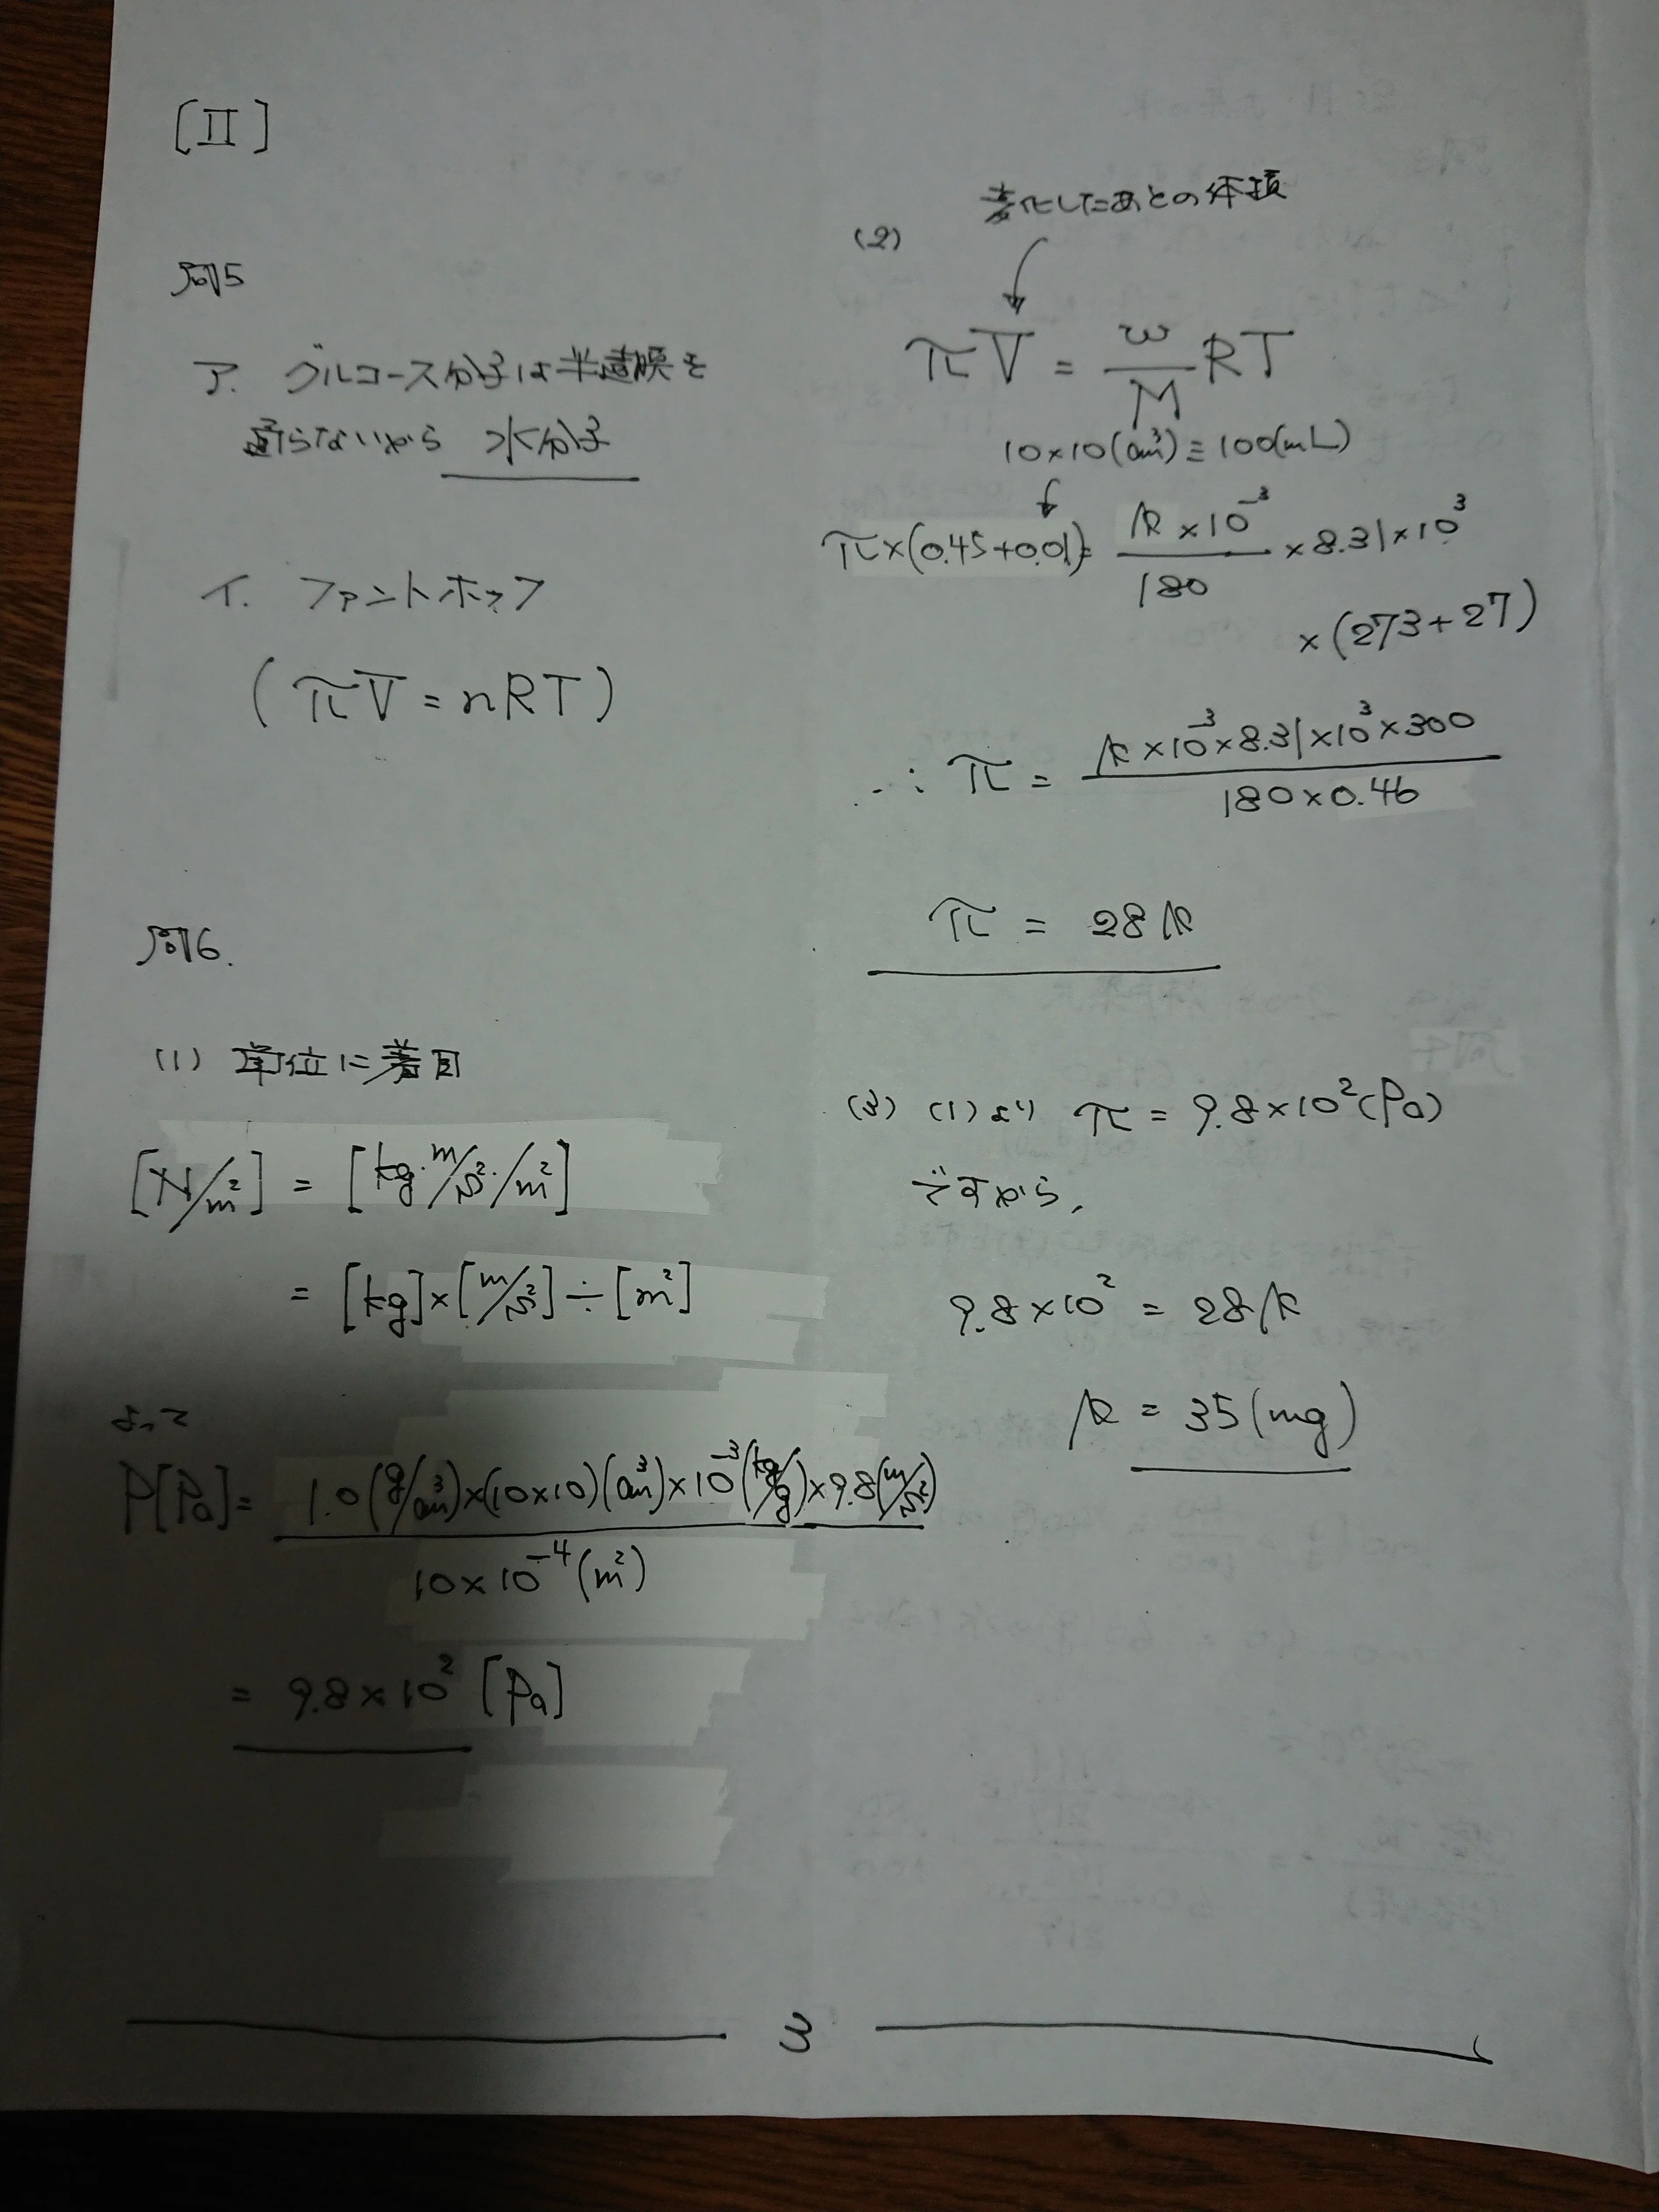 [II]
問5
ア. グルコース分子は半透膜を
通らないから 水分子
イ. ファントホッフ
(πV = nRT)
問6.
(1) 単位に着目
[N/m²] = [kg・m/s²・/m²]
= [kg]×[m/s²]÷[m²]
よって
P[Pa] = 1.0(g/cm³)×(10×10)(cm³)×10⁻³(kg/g)×9.8(m/s²)
10×10⁻⁴(m²)
= 9.8×10² [Pa]
(2)
変化したあとの体積
πV = w/M RT
10×10(cm³) = 100(mL)
π×(0.45+0.01) = k×10⁻³/180 ×8.31×10³
×(273+27)
∴ π = k×10⁻³×8.31×10³×300
180×0.46
π = 28k
(3) (1)より π = 9.8×10²(Pa)
ですから,
9.8×10² = 28k
k = 35(mg)
3